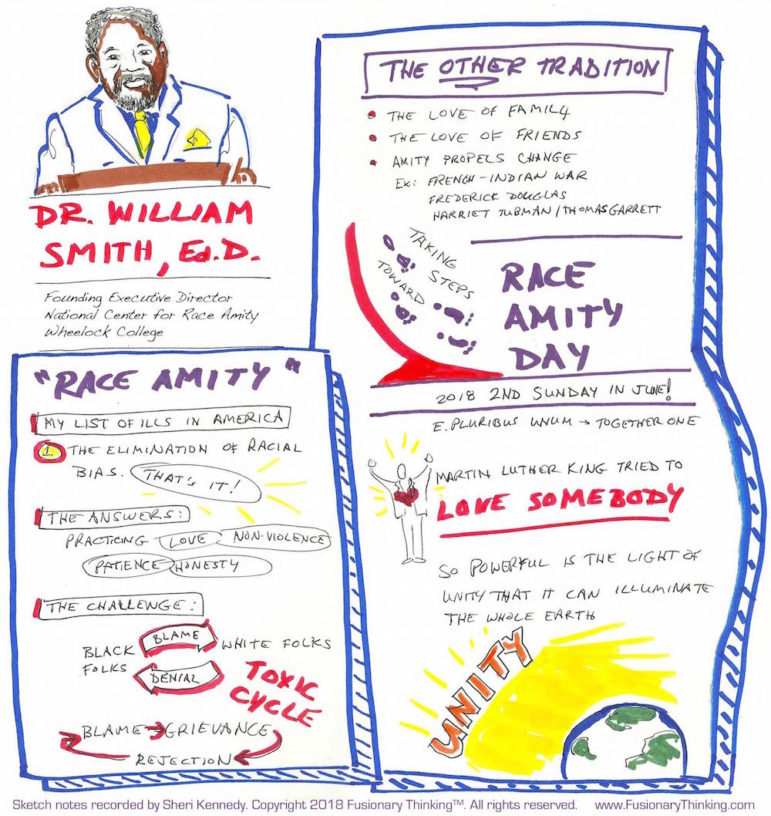 DR. WILLIAM
SMITH, Ed.D.
Founding Executive Director
National Center for Race Amity
Wheelock College
"RACE AMITY"
MY LIST OF ILLS IN AMERICA
1 THE ELIMINATION OF RACIAL
BIAS. THAT'S IT!
THE ANSWERS:
PRACTICING LOVE NON-VIOLENCE
PATIENCE HONESTY
THE CHALLENGE:
BLACK FOLKS
BLAME
WHITE FOLKS
DENIAL
TOXIC
CYCLE
BLAME → GRIEVANCE
REJECTION
THE OTHER TRADITION
• THE LOVE OF FAMILY
• THE LOVE OF FRIENDS
• AMITY PROPELS CHANGE
Ex: FRENCH-INDIAN WAR
FREDERICK DOUGLAS
HARRIET TUBMAN/THOMAS GARRETT
TAKING
STEPS
TOWARD
RACE
AMITY
DAY
2018 2ND SUNDAY IN JUNE!
E.PLURIBUS UNUM → TOGETHER ONE
MARTIN LUTHER KING TRIED TO
LOVE SOMEBODY
SO POWERFUL IS THE LIGHT OF
UNITY THAT IT CAN ILLUMINATE
THE WHOLE EARTH
UNITY
Sketch notes recorded by Sheri Kennedy. Copyright 2018 Fusionary Thinking™. All rights reserved. www.FusionaryThinking.com